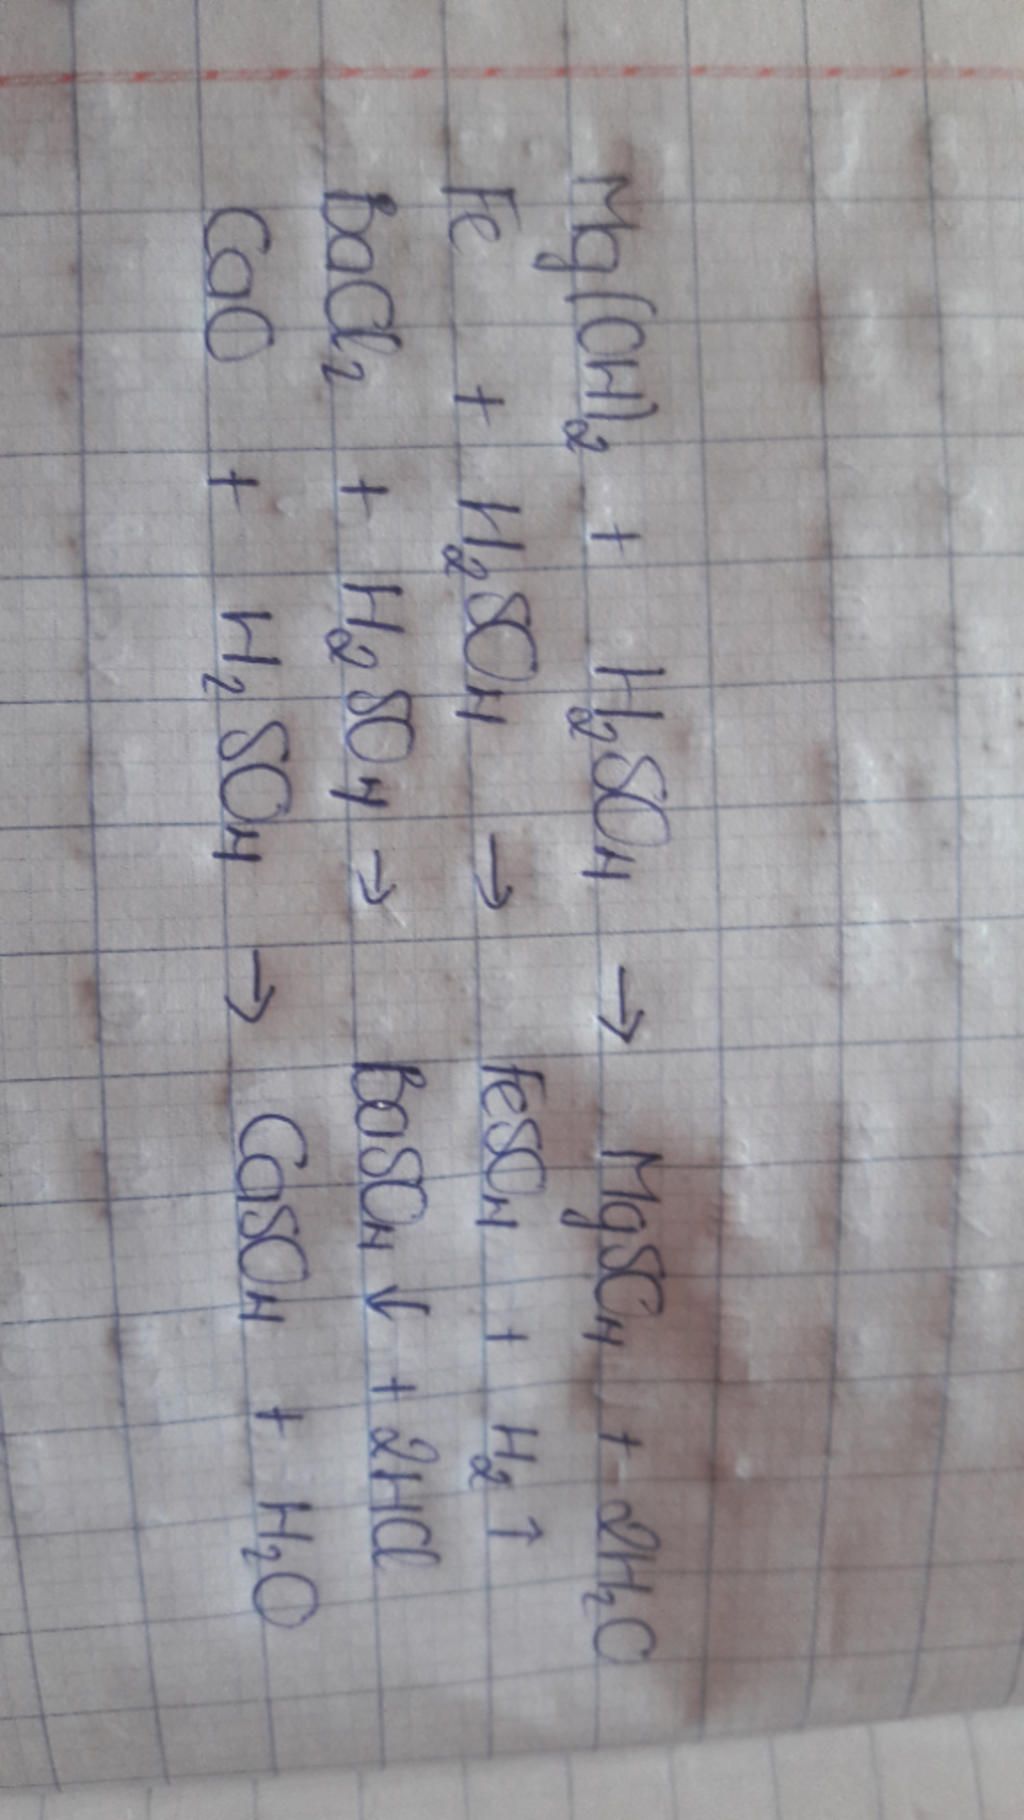 Mg(OH)₂ + H₂SO₄ → MgSO₄ + 2H₂O
Fe + H₂SO₄ → FeSO₄ + H₂↑
BaCl₂ + H₂SO₄ → BaSO₄↓ + 2HCl
CaO + H₂SO₄ → CaSO₄ + H₂O